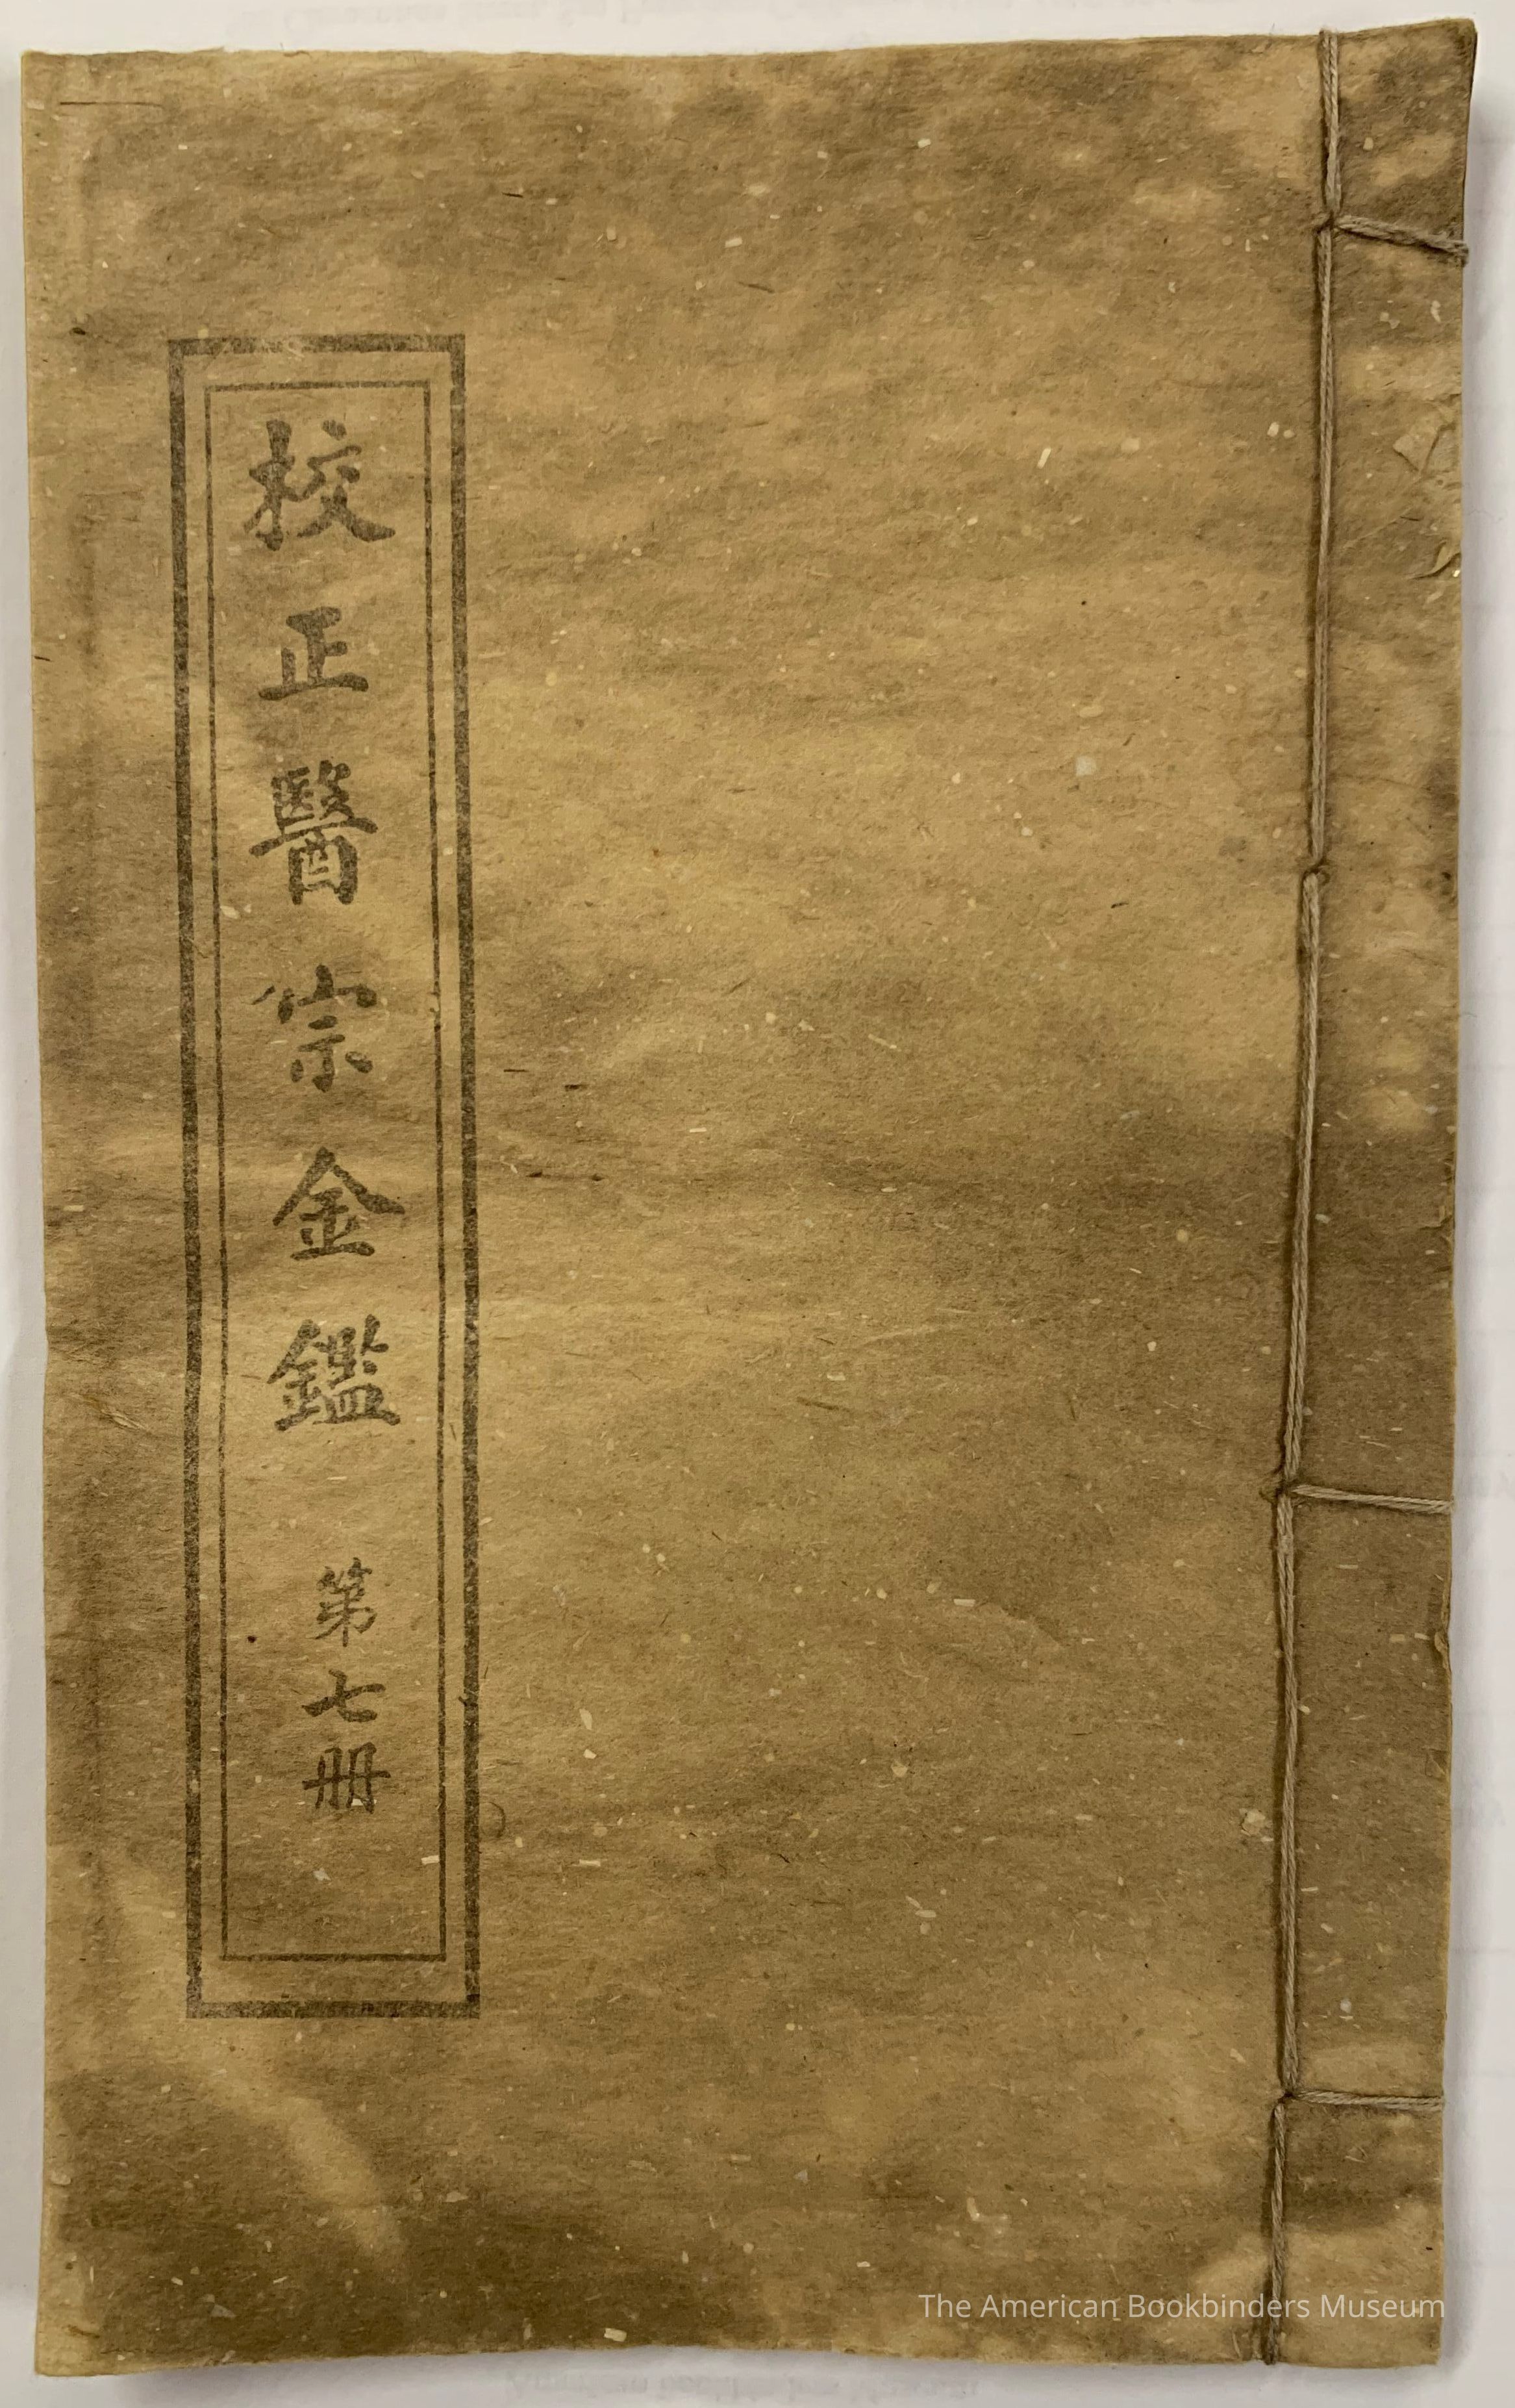 校正醫宗金鑑 第七册
The American Bookbinders Museum